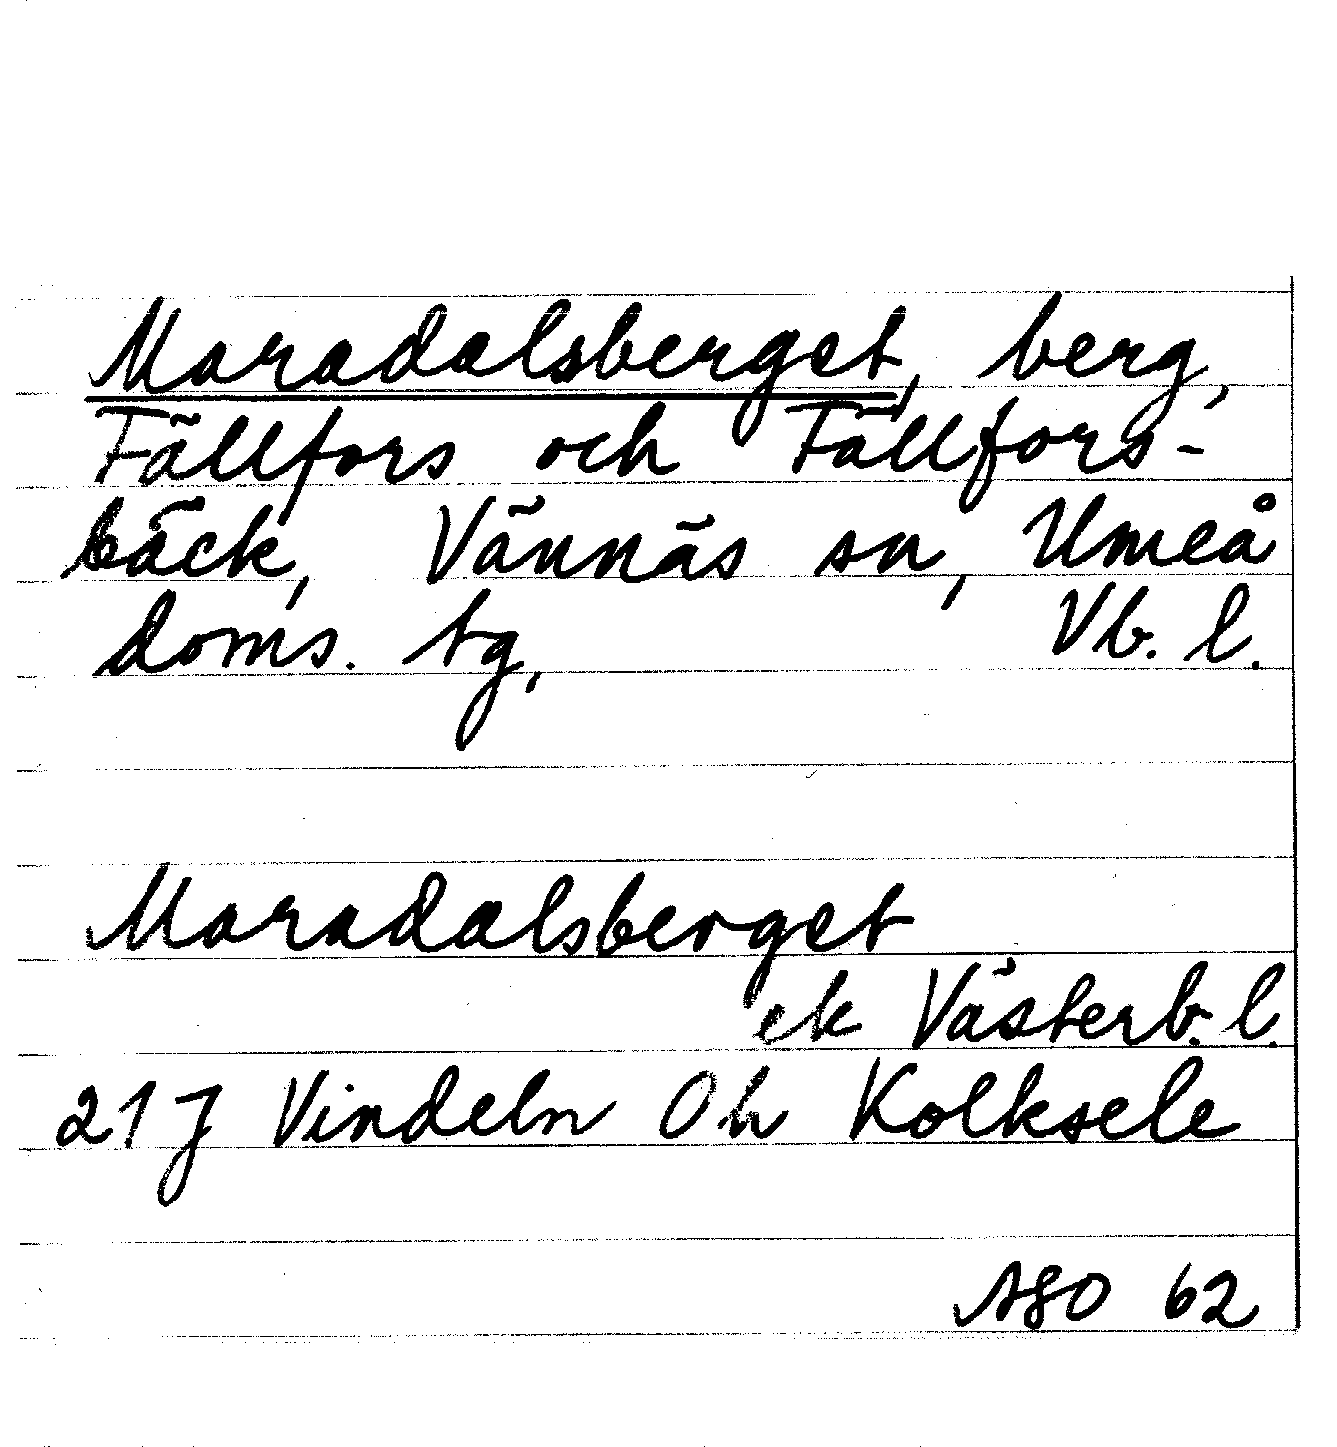 Maradalsberget, berg,
Fällfors och Fällfors-
bäck, Vännäs sn, Umeå
doms. tg, Vb. l.
Maradalsberget
ek Västerb. l.
21J Vindeln 0h Kolksele
ASO 62